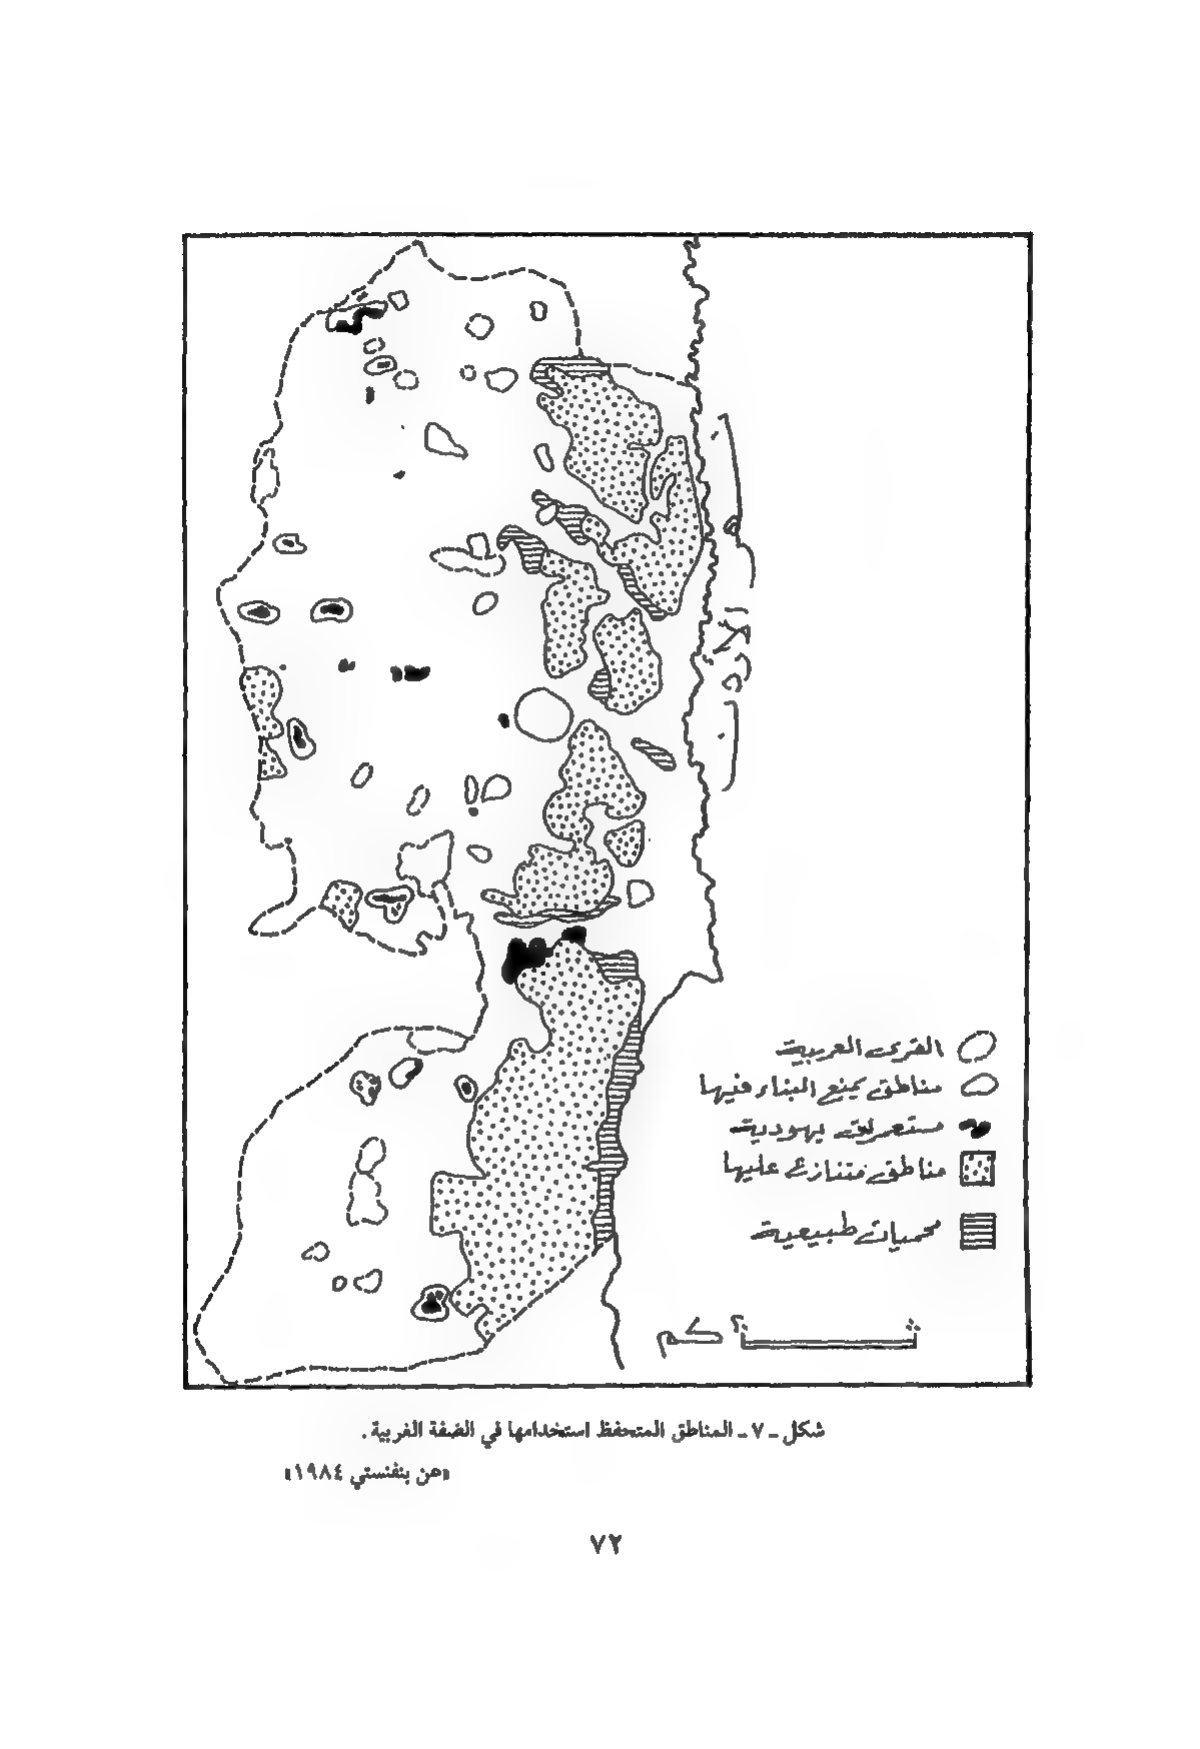 الأردن
القرى العربية
مناطق يمنع البناء فيها
مستعمرات يهودية
مناطق متنازع عليها
محميات طبيعية
كم
شكل ـ ٧ ـ المناطق المتحفظ استخدامها في الضفة الغربية .
«من بنفنستي ١٩٨٤»
٧٢